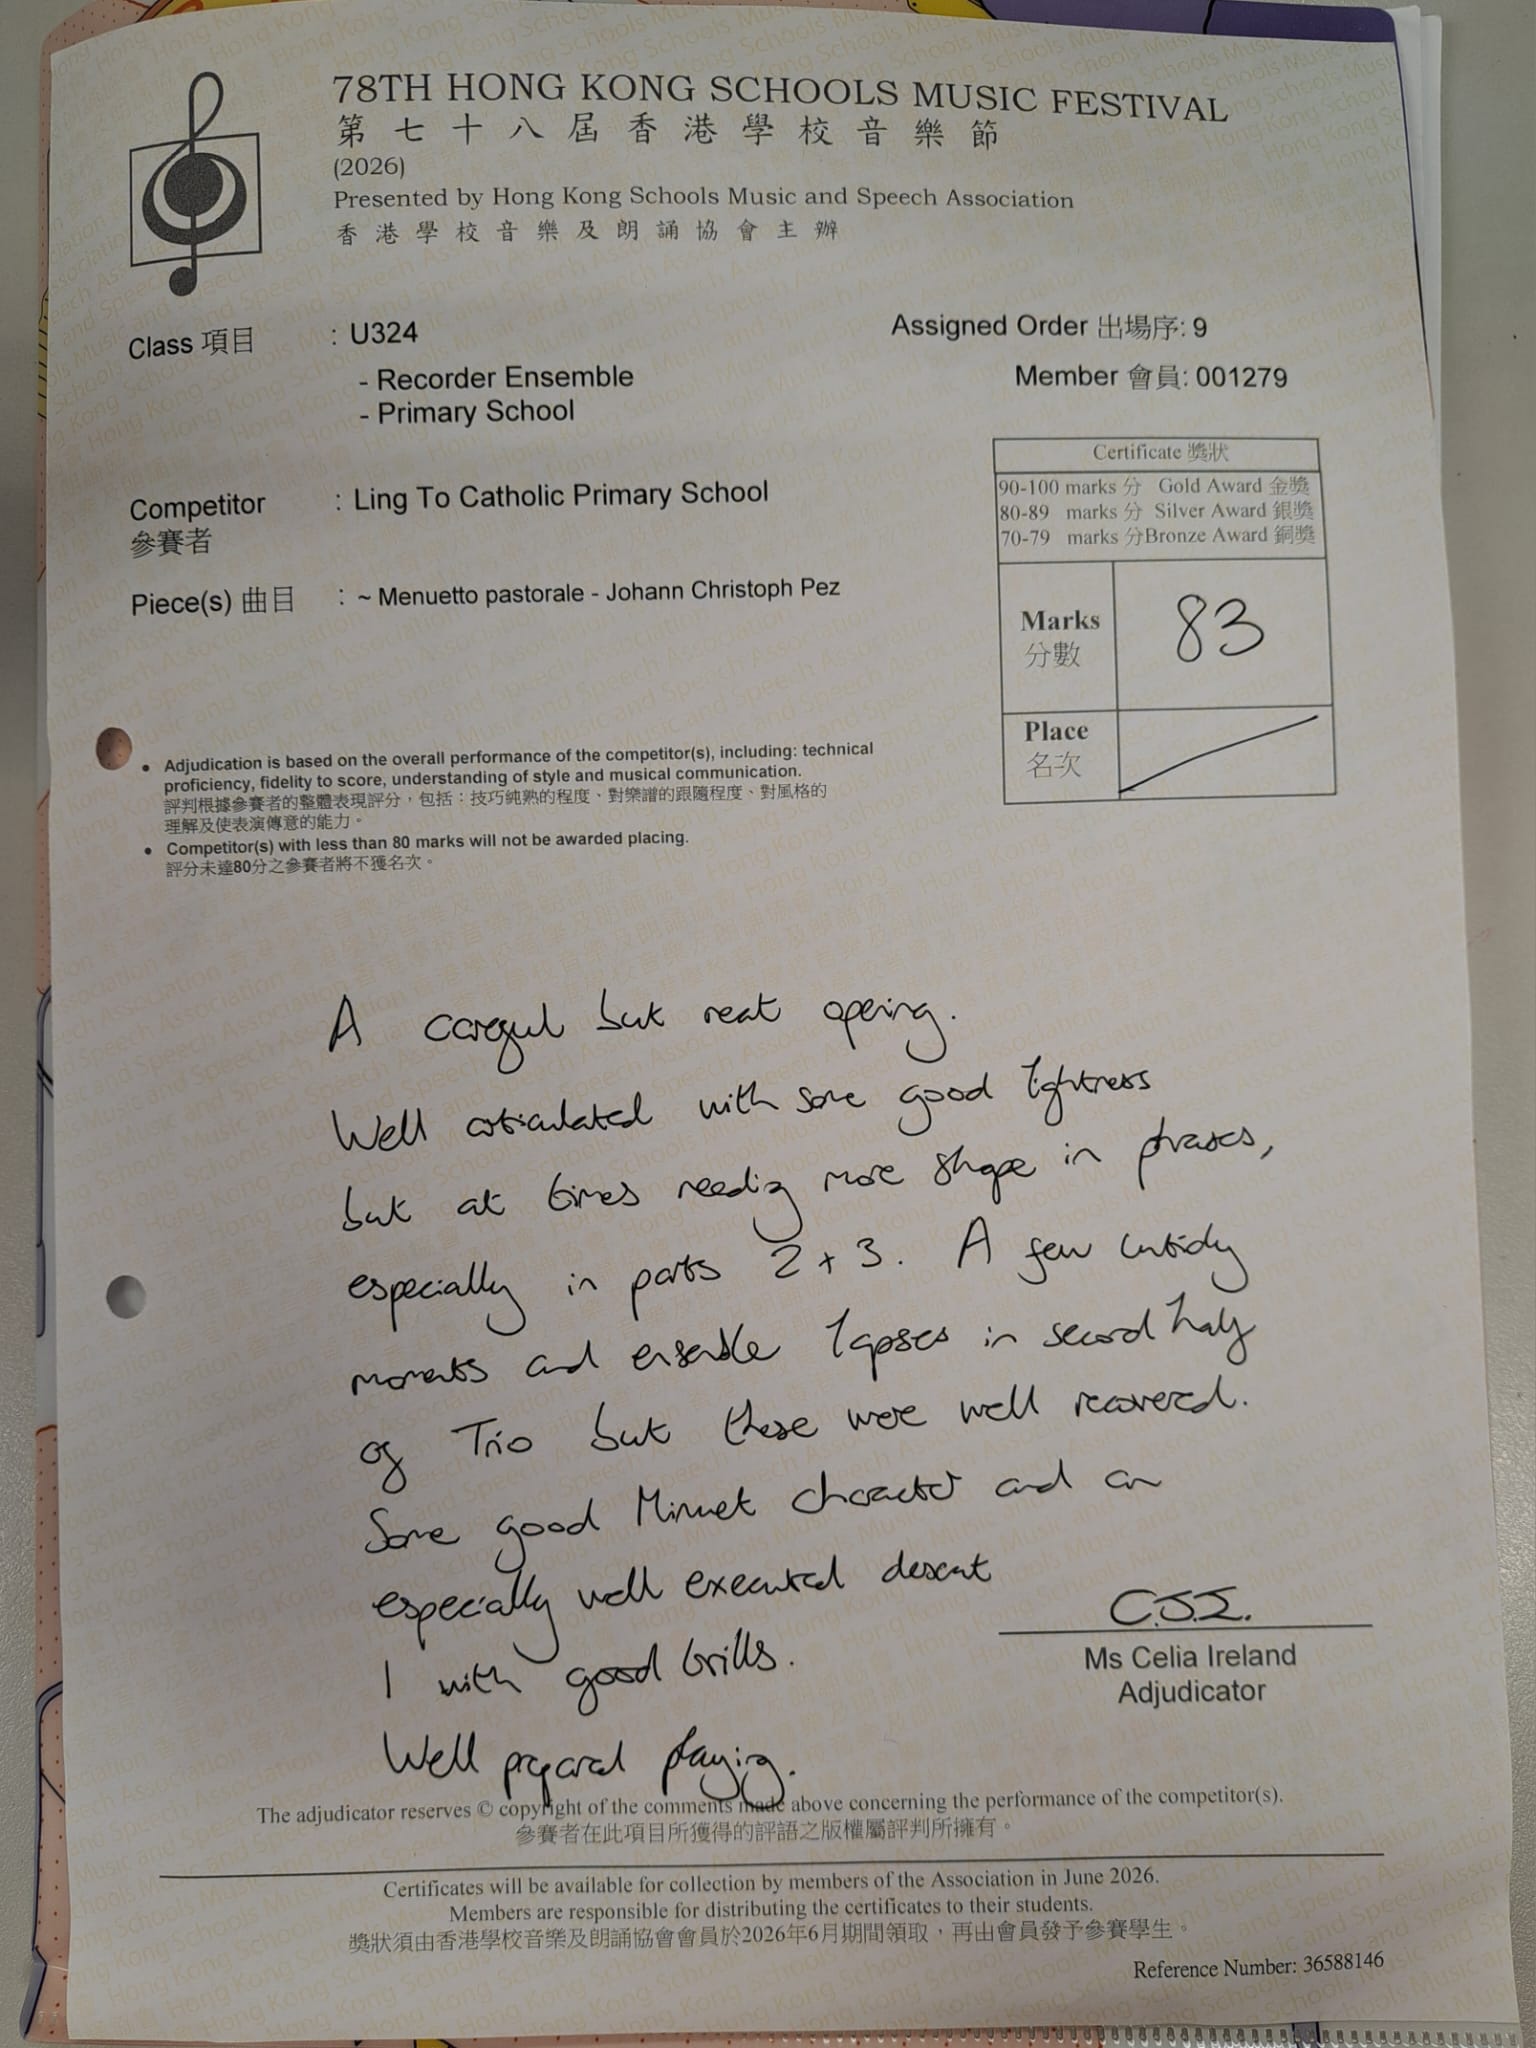 78TH HONG KONG SCHOOLS MUSIC FESTIVAL
第七十八屆香港學校音樂節
(2026)
Presented by Hong Kong Schools Music and Speech Association
香港學校音樂及朗誦協會主辦
Class 項目 : U324
- Recorder Ensemble
- Primary School
Assigned Order 出場序: 9
Member 會員: 001279
Competitor : Ling To Catholic Primary School
參賽者
Piece(s) 曲目 : ~ Menuetto pastorale - Johann Christoph Pez
Certificate 獎狀
90-100 marks 分 Gold Award 金獎
80-89 marks 分 Silver Award 銀獎
70-79 marks 分 Bronze Award 銅獎
Marks 83
分數
Place
名次
• Adjudication is based on the overall performance of the competitor(s), including: technical
proficiency, fidelity to score, understanding of style and musical communication.
評判根據參賽者的整體表現評分，包括：技巧純熟的程度、對樂譜的跟隨程度、對風格的
理解及使表演傳意的能力。
• Competitor(s) with less than 80 marks will not be awarded placing.
評分未達80分之參賽者將不獲名次。
A careful but neat opening.
Well articulated with some good lightness
but at times needing more shape in phrases,
especially in parts 2 + 3. A few untidy
moments and ensemble lapses in second half
of Trio but these were well recovered.
Some good Minuet character and an
especially well executed descant
1 with good trills.
Well prepared playing.
C.J.I.
Ms Celia Ireland
Adjudicator
The adjudicator reserves © copyright of the comments made above concerning the performance of the competitor(s).
參賽者在此項目所獲得的評語之版權屬評判所擁有。
Certificates will be available for collection by members of the Association in June 2026.
Members are responsible for distributing the certificates to their students.
獎狀須由香港學校音樂及朗誦協會會員於2026年6月期間領取，再由會員發予參賽學生。
Reference Number: 36588146